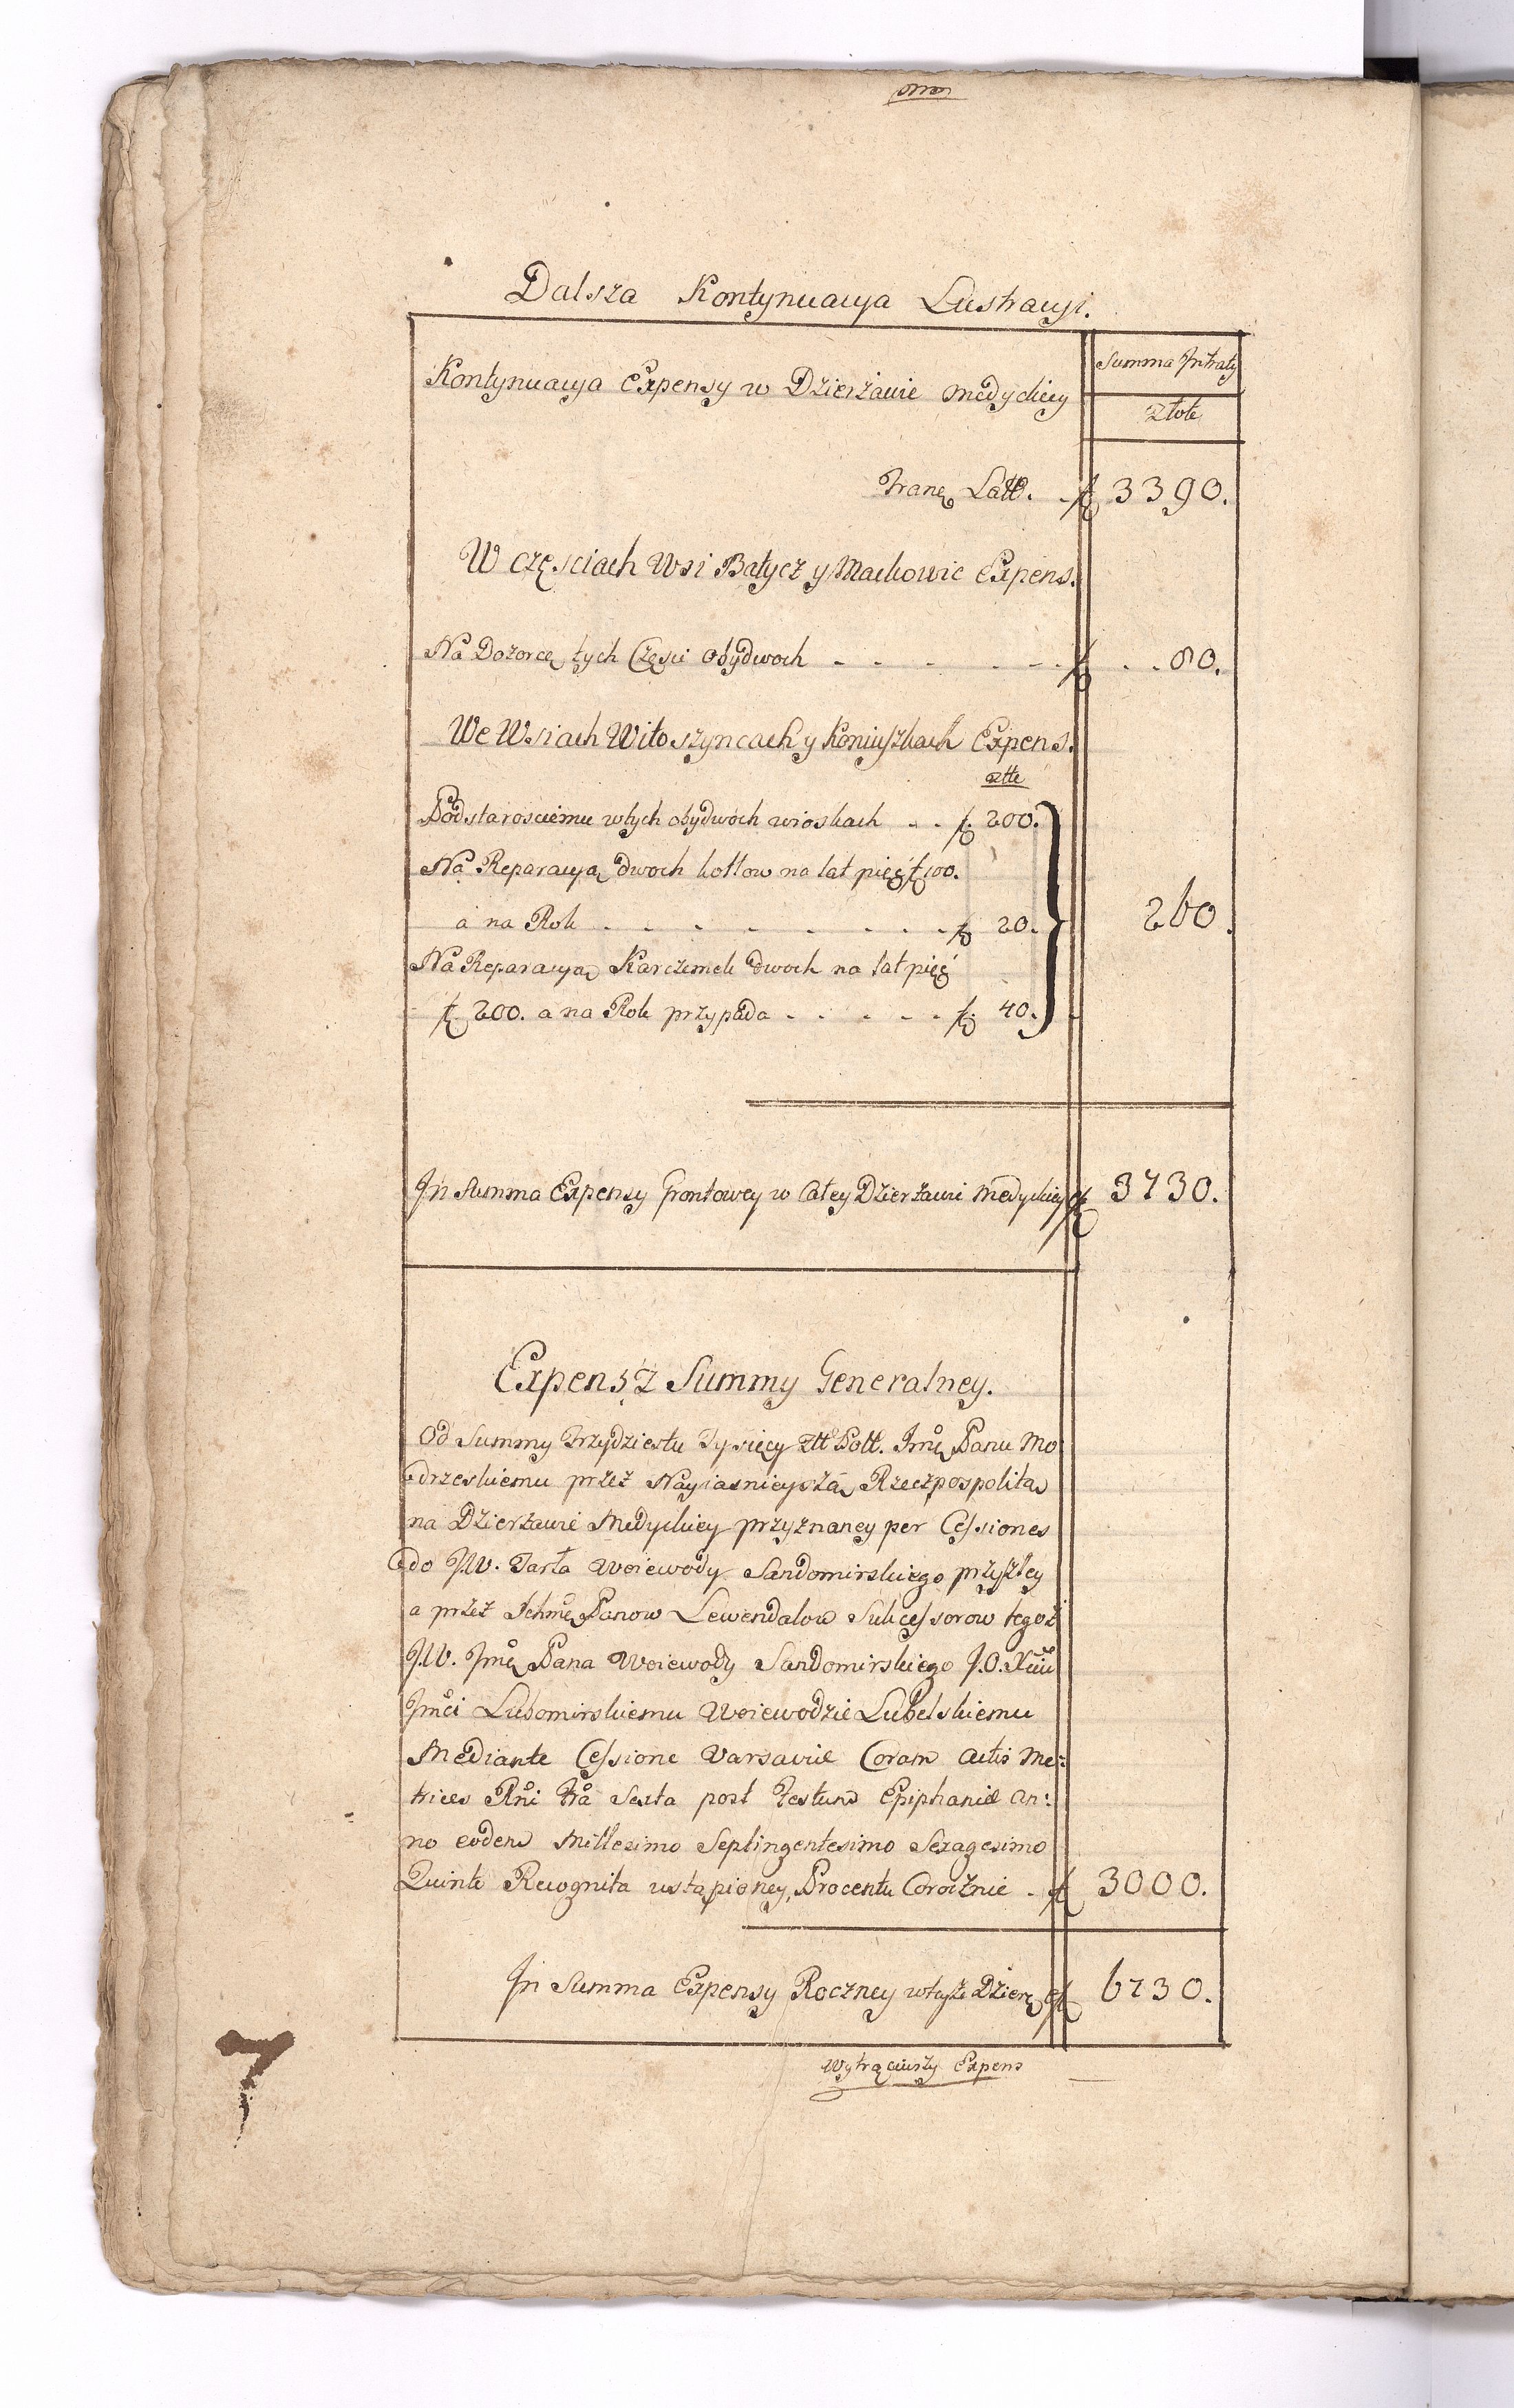 Dalsza Kontynuacya Lustracyi.
Kontynuacya Expensy w Dzierzawie Medyckiey
Summa Intraty
złote
Tranę Latt. f 3390.
W częsciach Wsi Batycz y Mackowic Expens.
Na Dozorcę tych Częsci obydwoch - - - - - - f . . 80.
We Wsiach Witoszyncach y Koniuszkach Expens.
ztte
Podstarosciemu wtych obydwoch wioskach . . f. 200.
Na Reparacyą dwoch kotłow na lat pięć f 100.
a na Rok . . . . . . . . f 20.
260.
Na Reparacyą Karczmek dwoch na lat pięć
f 200. a na Rok przypada . . . . . f. 40.
In Summa Expensy Grontowey w Całey Dzierzawie Medyckiey f 3730.
Expens z Summy Generalney.
Od Summy Trzydziestu Tysięcy Ztt Poll. Jmę Panu Mo
drzeskiemu przez Nayiasnieyszą Rzeczpospolitą
na Dzierzawie Medyckiey przyznaney per Cessiones
do J.W. Tarła Woiewody Sandomirskiego przyszłey
a przez Ichmę Panow Lewendalow Sukcessorow tegoż
J.W. Jmę Pana Woiewody Sandomirskiego J.O. Xciu
Jmci Lubomirskiemu Woiewodzie Lubelskiemu
Mediante Cessione Varsaviæ Coram Actis Me:
trices Rni fra Sexta post Festum Epiphaniæ An:
no eodem Millesimo Septingentesimo Sexagesimo
Quinto Recognita ustąpioney, Procentu Corocznie . f 3000.
In Summa Expensy Roczney wteyże Dzierz f 6730.
Wytrąciwszy Expens